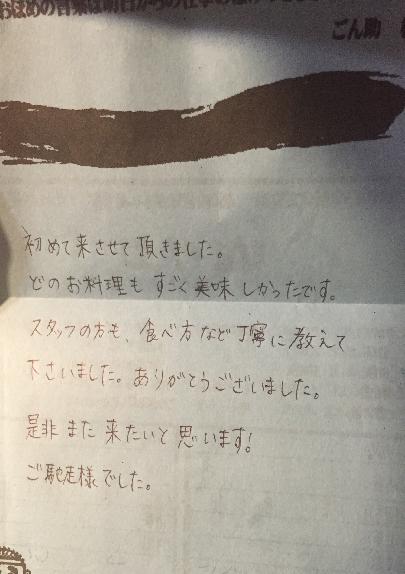 おほめの言葉は明日からの仕事の
ごん助
初めて来させて頂きました。
どのお料理もすごく美味しかったです。
スタッフの方も、食べ方など丁寧に教えて
下さいました。ありがとうございました。
是非また来たいと思います!
ご馳走様でした。